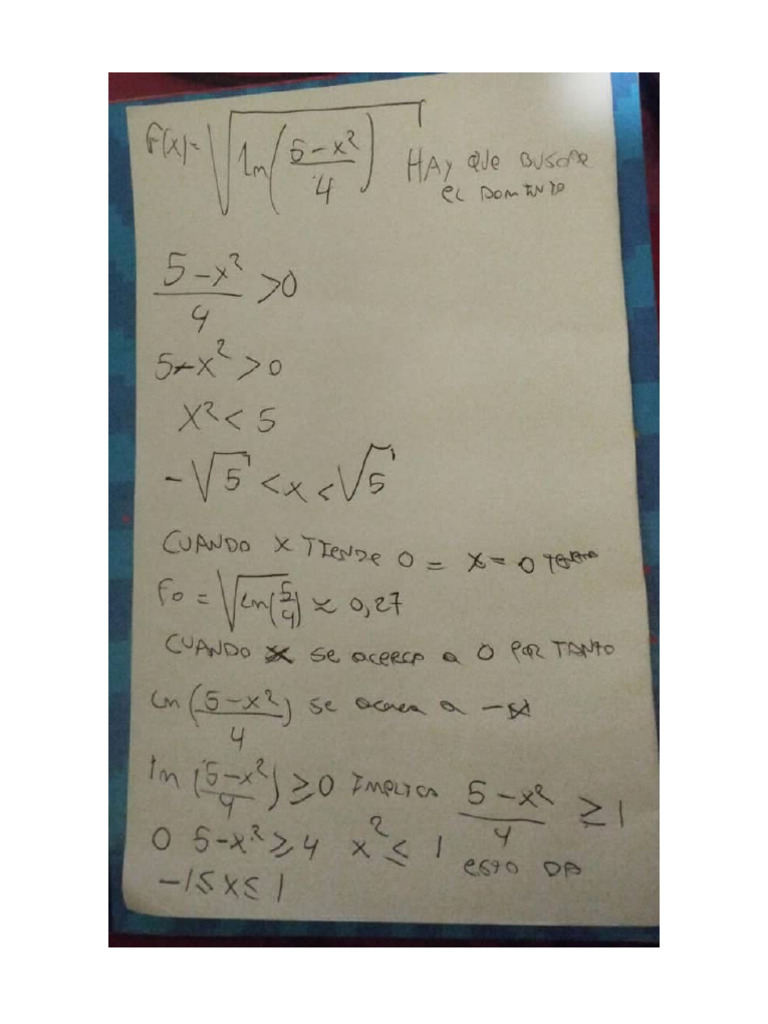 F(x)= √(ln((5-x²)/4)) HAY QUE BUSCAR
EL DOMINIO
(5-x²)/4 >0
5-x² >0
x² < 5
-√5 <x <√5
CUANDO X TIENDE 0 = x = 0
F0 = √(Ln(5/4)) ≈ 0,27
CUANDO x se acerca a 0 POR TANTO
Ln((5-x²)/4) se acerca a -∞
ln((5-x²)/4) ≥0 IMPLICA (5-x²)/4 ≥ 1
O 5-x² ≥ 4 x² ≤ 1 esto DA
-1≤ x ≤ 1